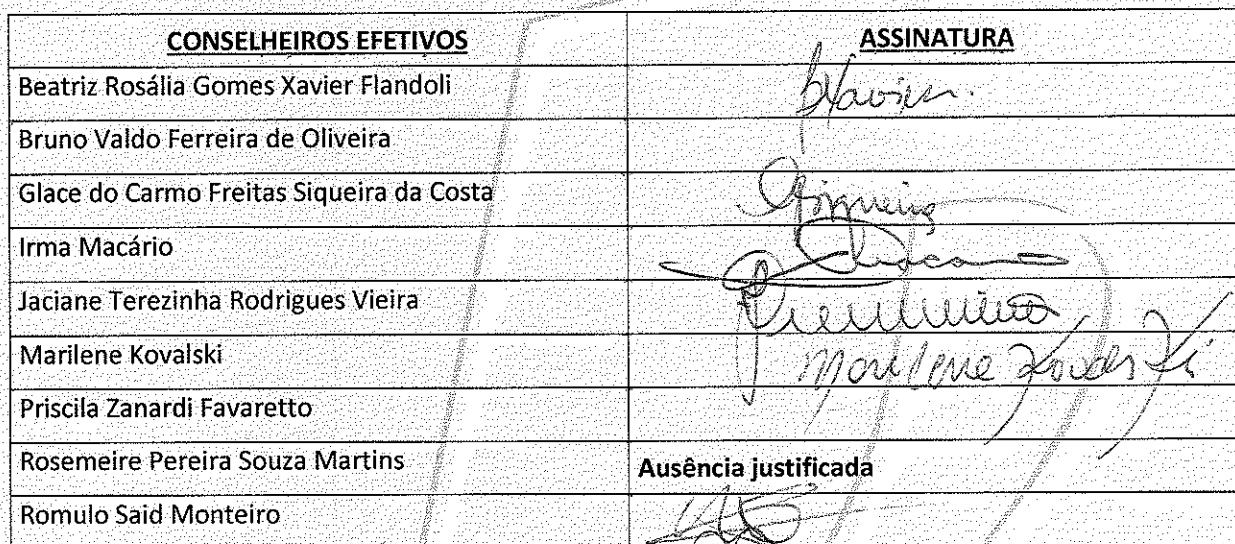 CONSELHEIROS EFETIVOS ASSINATURA
Beatriz Rosália Gomes Xavier Flandoli bXavier.
Bruno Valdo Ferreira de Oliveira
Glace do Carmo Freitas Siqueira da Costa GSiqueira
Irma Macário
Jaciane Terezinha Rodrigues Vieira
Marilene Kovalski Marilene Kovalski
Priscila Zanardi Favaretto
Rosemeire Pereira Souza Martins Ausência justificada
Romulo Said Monteiro